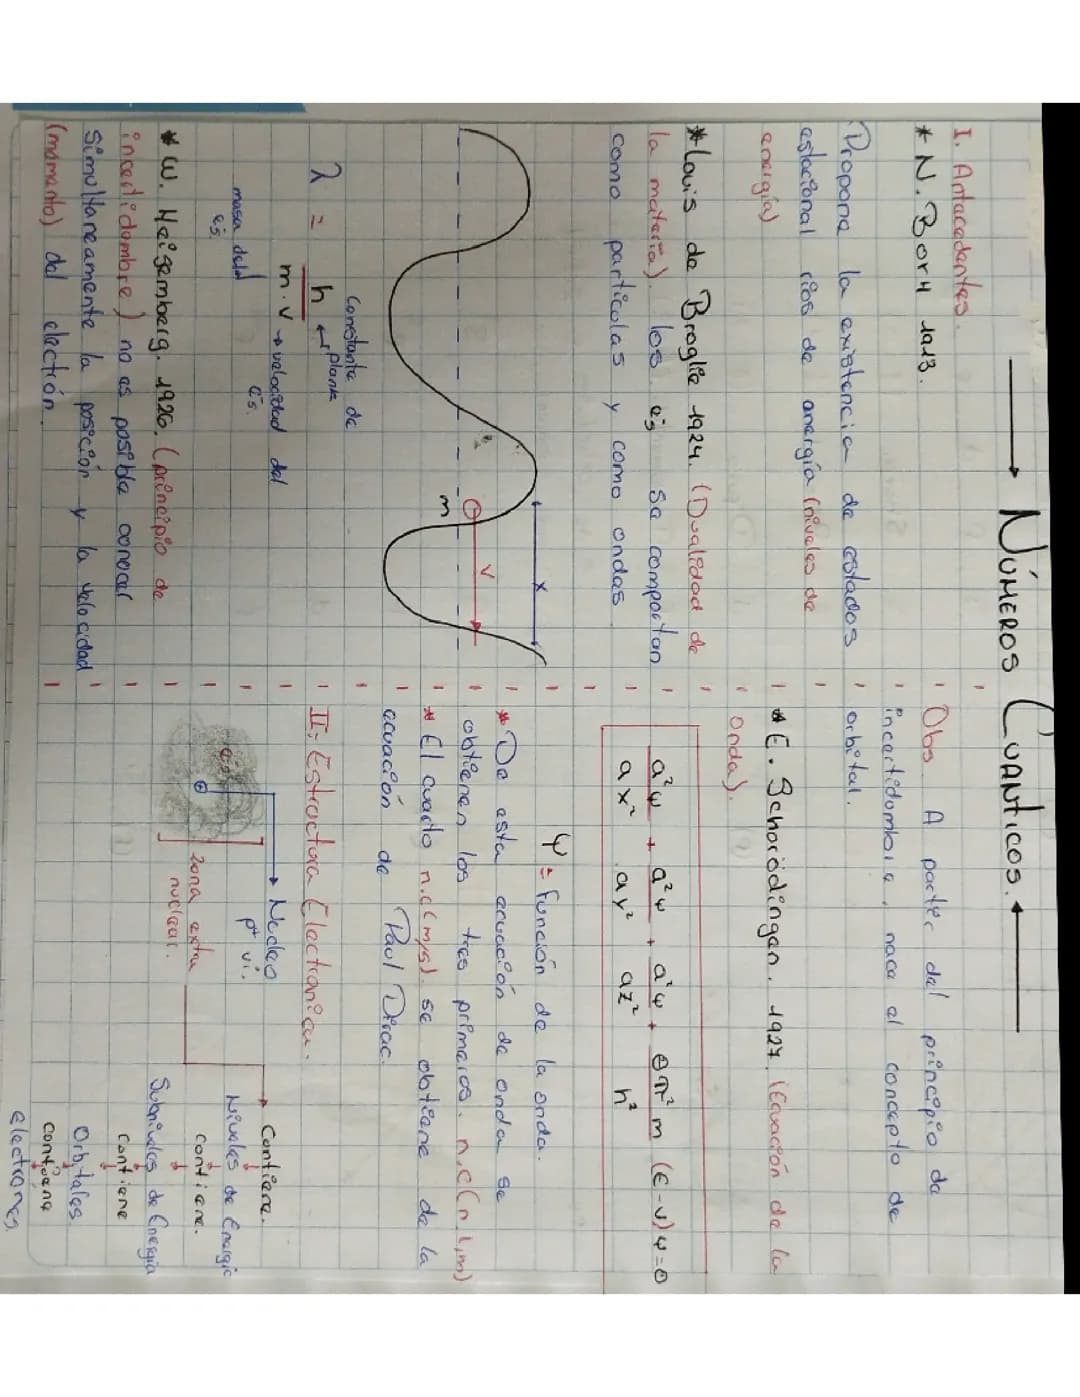 NÚMEROS CUANTICOS.
I. Antecedentes.
* N. BorH 1913.
Propone la existencia de estados
estacional rios de energía (niveles de
energía)
* Louis de Broglie 1924. (Dualidad de
la materia). los e⁻s se comportan
como partículas y como ondas
x
v
m
λ = h / m·v
Constante de
Plank
velocidad del
e⁻s.
masa del
e⁻s.
* W. Heisemberg. 1926. (principio de
incertidombre) no es posible conocer
Simultaneamente la posición y la velocidad
(momento) del electrón.
Obs. A partir del principio de
incertidombre, nace el concepto de
orbital.
* E. Scharödingen. 1927. (Ecuación de la
onda).
a²ψ/ax² + a²ψ/ay² + a²ψ/az² + 8π²m/h² (E-v)ψ=0
ψ = función de la onda.
* De esta ecuación de onda se
obtienen los tres primeros. n.c (n, l, m)
* El cuarto n.c (ms) se obtiene de la
ecuación de Paul Dirac.
II. Estructura Electronica.
Nucleo
p⁺
zona extra
nuclear.
Contiene.
Niveles de Energía
contiene.
Subniveles de Energía
contiene
Orbitales.
contiene
electrones.